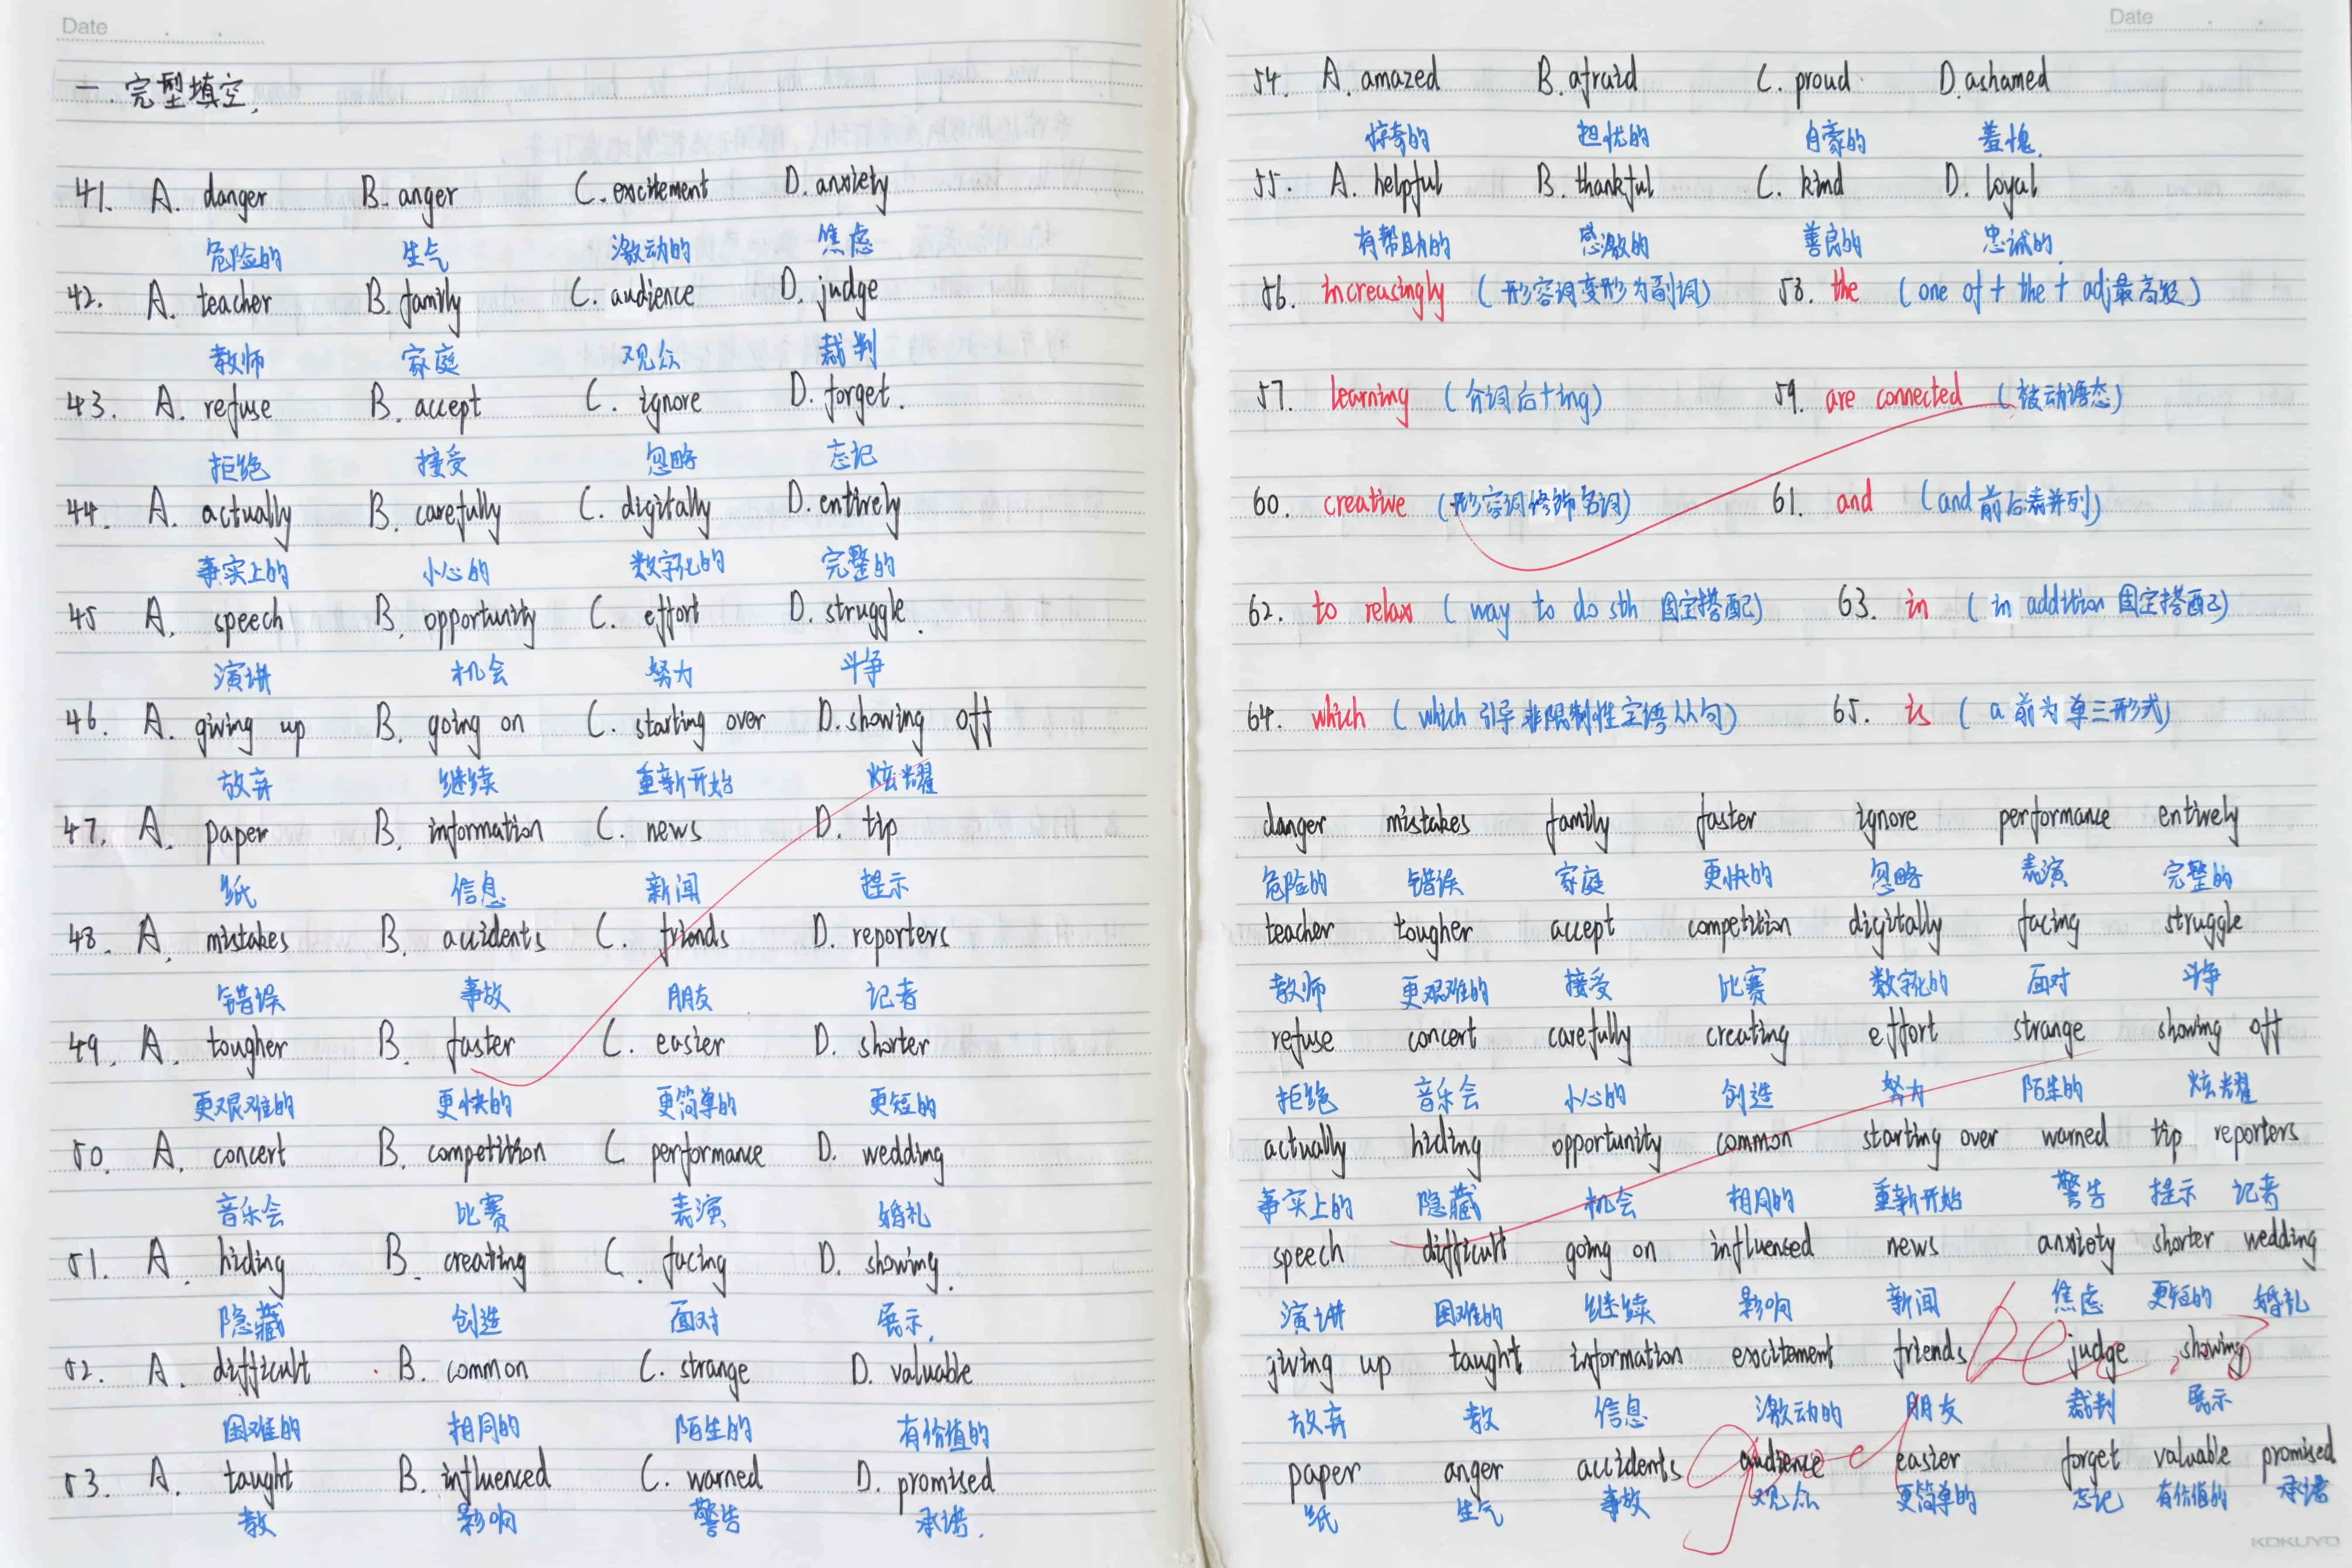 Date
一. 完型填空.
41. A. danger B. anger C. excitement D. anxiety
危险的 生气 激动的 焦虑
42. A. teacher B. family C. audience D. judge
教师 家庭 观众 裁判
43. A. refuse B. accept C. ignore D. forget.
拒绝 接受 忽略 忘记
44. A. actually B. carefully C. digitally D. entirely
事实上的 小心的 数字化的 完整的
45 A. speech B. opportunity C. effort D. struggle.
演讲 机会 努力 斗争
46. A. giving up B. going on C. starting over D. showing off
放弃 继续 重新开始 炫耀
47. A. paper B. information C. news D. tip
纸 信息 新闻 提示
48. A. mistakes B. accidents C. friends D. reporters
错误 事故 朋友 记者
49. A. tougher B. faster C. easier D. shorter
更艰难的 更快的 更简单的 更短的
50. A. concert B. competition C performance D. wedding
音乐会 比赛 表演 婚礼
51. A. hiding B. creating C. facing D. showing.
隐藏 创造 面对 展示.
52. A. difficult B. common C. strange D. valuable
困难的 相同的 陌生的 有价值的
53. A. taught B. influenced C. warned D. promised
教 影响 警告 承诺.
Date
54. A. amazed B. afraid C. proud D. ashamed
惊奇的 担忧的 自豪的 羞愧.
55. A. helpful B. thankful C. kind D. loyal
有帮助的 感激的 善良的 忠诚的.
56. increasingly (形容词变形为副词) 58. the (one of + the + adj最高级)
57. learning (介词后+ing) 59. are connected (被动语态)
60. creative (形容词修饰名词) 61. and (and前后表并列)
62. to relax (way to do sth 固定搭配) 63. in (in addition 固定搭配)
64. which (which 引导非限制性定语从句) 65. is (a 前为单三形式)
danger mistakes family faster ignore performance entirely
危险的 错误 家庭 更快的 忽略 表演 完整的
teacher tougher accept competition digitally facing struggle
教师 更艰难的 接受 比赛 数字化的 面对 斗争
refuse concert carefully creating effort strange showing off
拒绝 音乐会 小心的 创造 努力 陌生的 炫耀
actually hiding opportunity common starting over warned tip reporters
事实上的 隐藏 机会 相同的 重新开始 警告 提示 记者
speech difficult going on influenced news anxiety shorter wedding
演讲 困难的 继续 影响 新闻 焦虑 更短的 婚礼
giving up taught information excitement friends judge showing
放弃 教 信息 激动的 朋友 裁判 展示
paper anger accidents audience easier forget valuable promised
纸 生气 事故 观众 更简单的 忘记 有价值的 承诺
good
KOKUYO